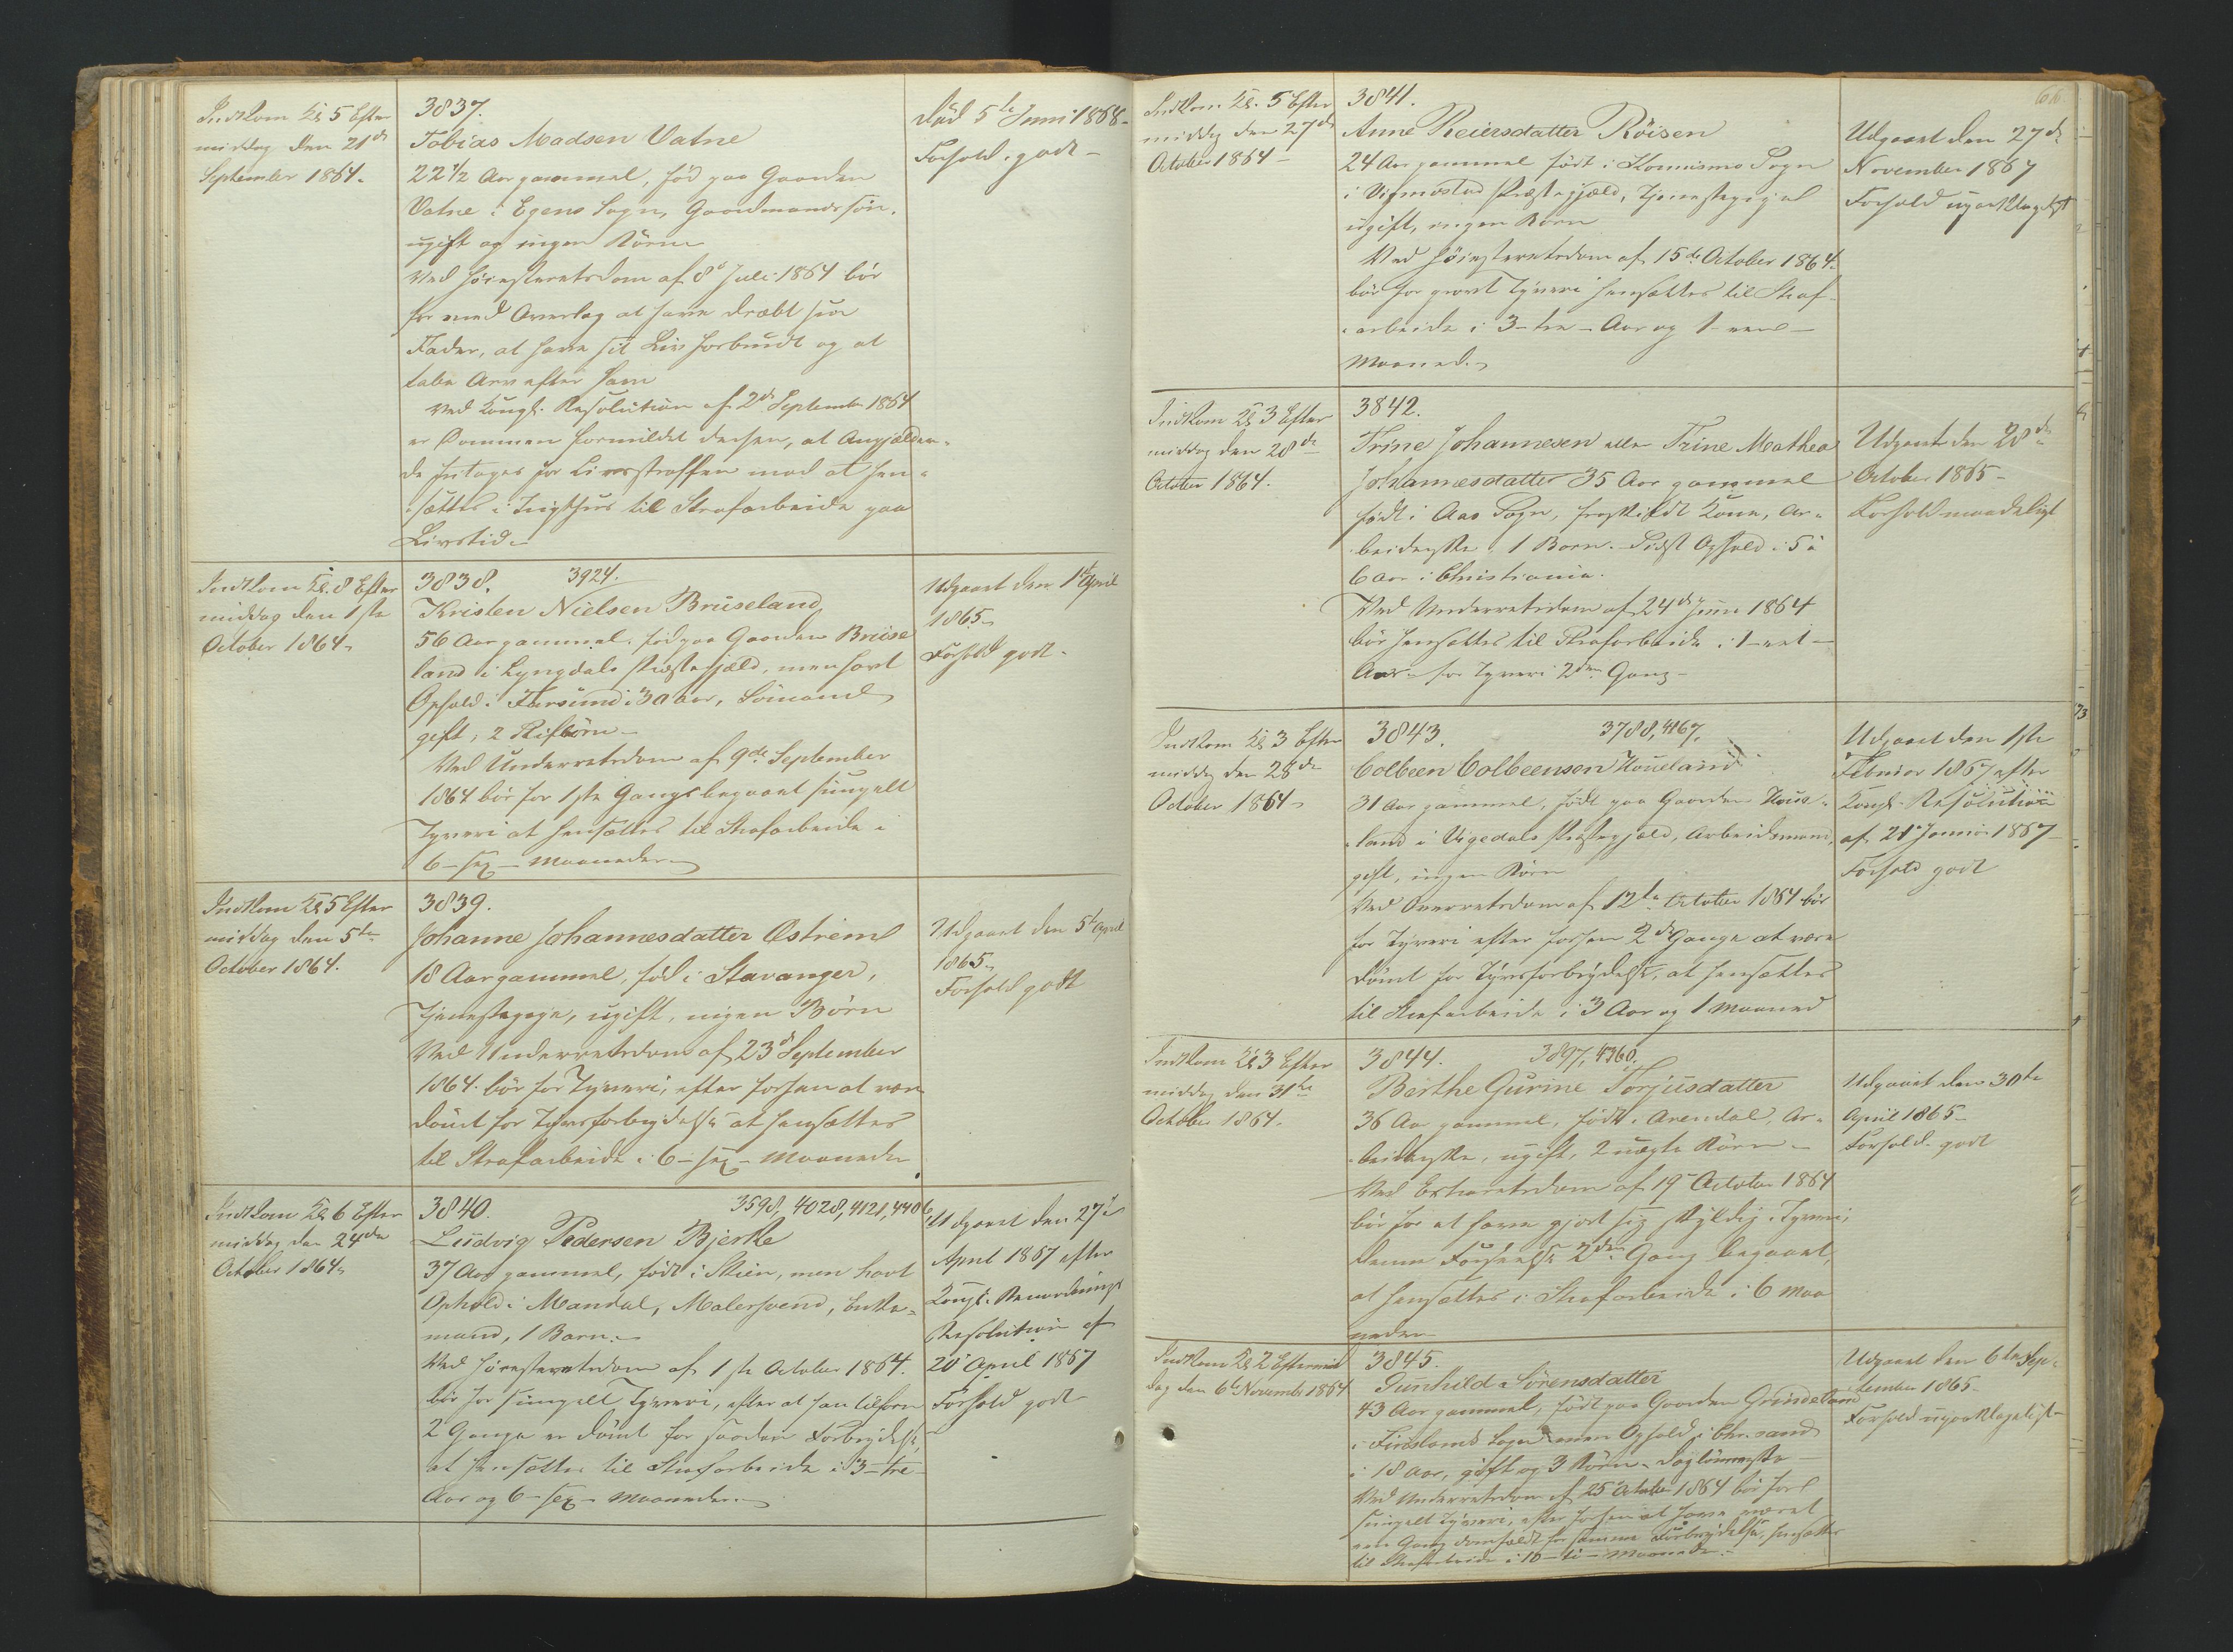 Indkom Kl 5 Efter
middag den 21de
September 1864.
3837.
Tobias Madsen Vatne
22 1/2 Aar gammel, fød paa Gaarden
Vatne i Egens Sogn, Gaardmandssøn,
ugift og ingen Børn
Ved Høiesteretsdom af 8de Juli 1864 bør
for med Overlæg at have dræbt sin
Fader, at have sit Liv forbrudt og at
tabe Arv efter ham
Ved Kongl. Resolution af 2den September 1864
er Dommen formildet derhen, at Angjælden-
de fritages for Livsstraffen mod at hen-
sættes i Tugthus til Strafarbeide paa
Livstid.
Død 5te Juni 1868-
Forhold godt-
Indkom Kl. 8 Efter
middag den 1ste
October 1864.
3838. 3924.
Kristen Nielsen Bruseland,
56 Aar gammel, fød paa Gaarden Bruse
land i Lyngdals Præstegjæld, men havt
Ophold i Farsund i 30 Aar, Sømand
gift, 2 Stifbørn-
Ved Underretsdom af 9de September
1864 bør for 1ste Gangs begaaet simpelt
Tyveri at hensættes til Strafarbeide i
6-sex-Maaneder
Udgaaet den 1ste April
1865.
Forhold godt-
Indkom Kl 5 Efter
middag den 5te
October 1864.
3839.
Johanne Johannesdatter Østrem
18 Aar gammel, fød i Stavanger,
Tjenestepige, ugift, ingen Børn
Ved Underretsdom af 23de September
1864 bør for Tyveri, efter forhen at være
dømt for Tyvsforbrydelse at hensættes
til Strafarbeide i 6-sex-Maaneder
Udgaaet den 5te April
1865.
Forhold godt
Indkom Kl 6 Efter
middag den 24de
October 1864.
3840. 3598, 4028, 4121, 4406,
Ludvig Pedersen Bjerke
37 Aar gammel, født i Skien, men havt
Ophold i Mandal, Malersvend, Enke-
mand, 1 Barn.
Ved Høiesteretsdom af 1ste October 1864.
bør for simpelt Tyveri, efter at han tilforn
2 Gange er dømt for saadan Forbrydelse,
at hensættes til Strafarbeide i 3-tre-
Aar og 6-sex-Maaneder.
Udgaaet den 27de
April 1867 efter
Kongl.
Resolution af
20de April 1867
Forhold godt
66.
Indkom Kl. 5 Efter
middag den 27de
October 1864-
3841.
Anne Reiersdatter Røisen
24 Aar gammel født i Konsmo Sogn
i Vigmostad Præstegjæld, Tjenestepige
ugift, ingen Børn
Ved Høiesteretsdom af 15de October 1864.
bør for grovt Tyveri hensættes til Straf-
arbeide i 3-tre-Aar og 1-een-
Maaned.
Udgaaet den 27de
November 1867
Forhold upaaklageligt
Indkom Kl 3 Efter
middag den 28de
October 1864.
3842.
Trine Johannesen eller Trine Mathea
Johannesdatter 35 Aar gammel
født i Aas Sogn, fraskildt Kone, Ar-
beiderske, 1 Barn. Sidst Ophold i 5 à
6 Aar i Christiania.
Ved Underretsdom af 24de Juni 1864
bør hensættes til Strafarbeide i 1-eet-
Aar- for Tyveri 2den Gang-
Udgaaet den 28de
October 1865-
Forhold maadeligt
Indkom Kl 3 Efter
middag den 28de
October 1864.
3843. 3788, 4167.
Colbeen Colbeensen Houeland
31 Aar gammel, født paa Gaarden Houe-
land i Vigedals Præstegjæld, Arbeidsmand,
gift, ingen Børn
Ved Overretsdom af 12te October 1864 bør
for Tyveri efter forhen 2de Gange at være
dømt for Tyvsforbrydelse, at hensættes
til Strafarbeide i 3 Aar og 1 Maaned
Udgaaet den 1ste
Februar 1867 efter
Kongl. Resolution
af 21de Januar 1867
Forhold godt
Indkom Kl 3 Efter
middag den 31te
October 1864.
3844. 3897, 4360.
Berthe Gurine Torjusdatter
36 Aar gammel, født i Arendal, Ar-
beiderske, ugift, 2 uægte Børn-
Ved Extraretsdom af 19de October 1864
bør for at have gjort sig skyldig i Tyveri,
denne Forseelse 2den Gang begaaet,
at hensættes i Strafarbeide i 6 Maa
neder
Udgaaet den 30te
April 1865-
Forhold godt
Indkom Kl 2 Eftermid
dag den 6te Novembr 1864
3845.
Gunhild Sørensdatter
43 Aar gammel, født paa Gaarden Grindeland
i Findslands Sogn men Ophold i Chr.sand
i 18 Aar, gift og 3 Børn. Daglønnerske-
Ved Underretsdom af 25de October 1864 bør for
simpelt Tyveri, efter forhen at have været
een Gang domfældt for samme Forbrydelse, hensættes
til Strafarbeide i 10-ti-Maaneder.
Udgaaet den 6te Sep-
tember 1865-
Forhold upaaklageligt-